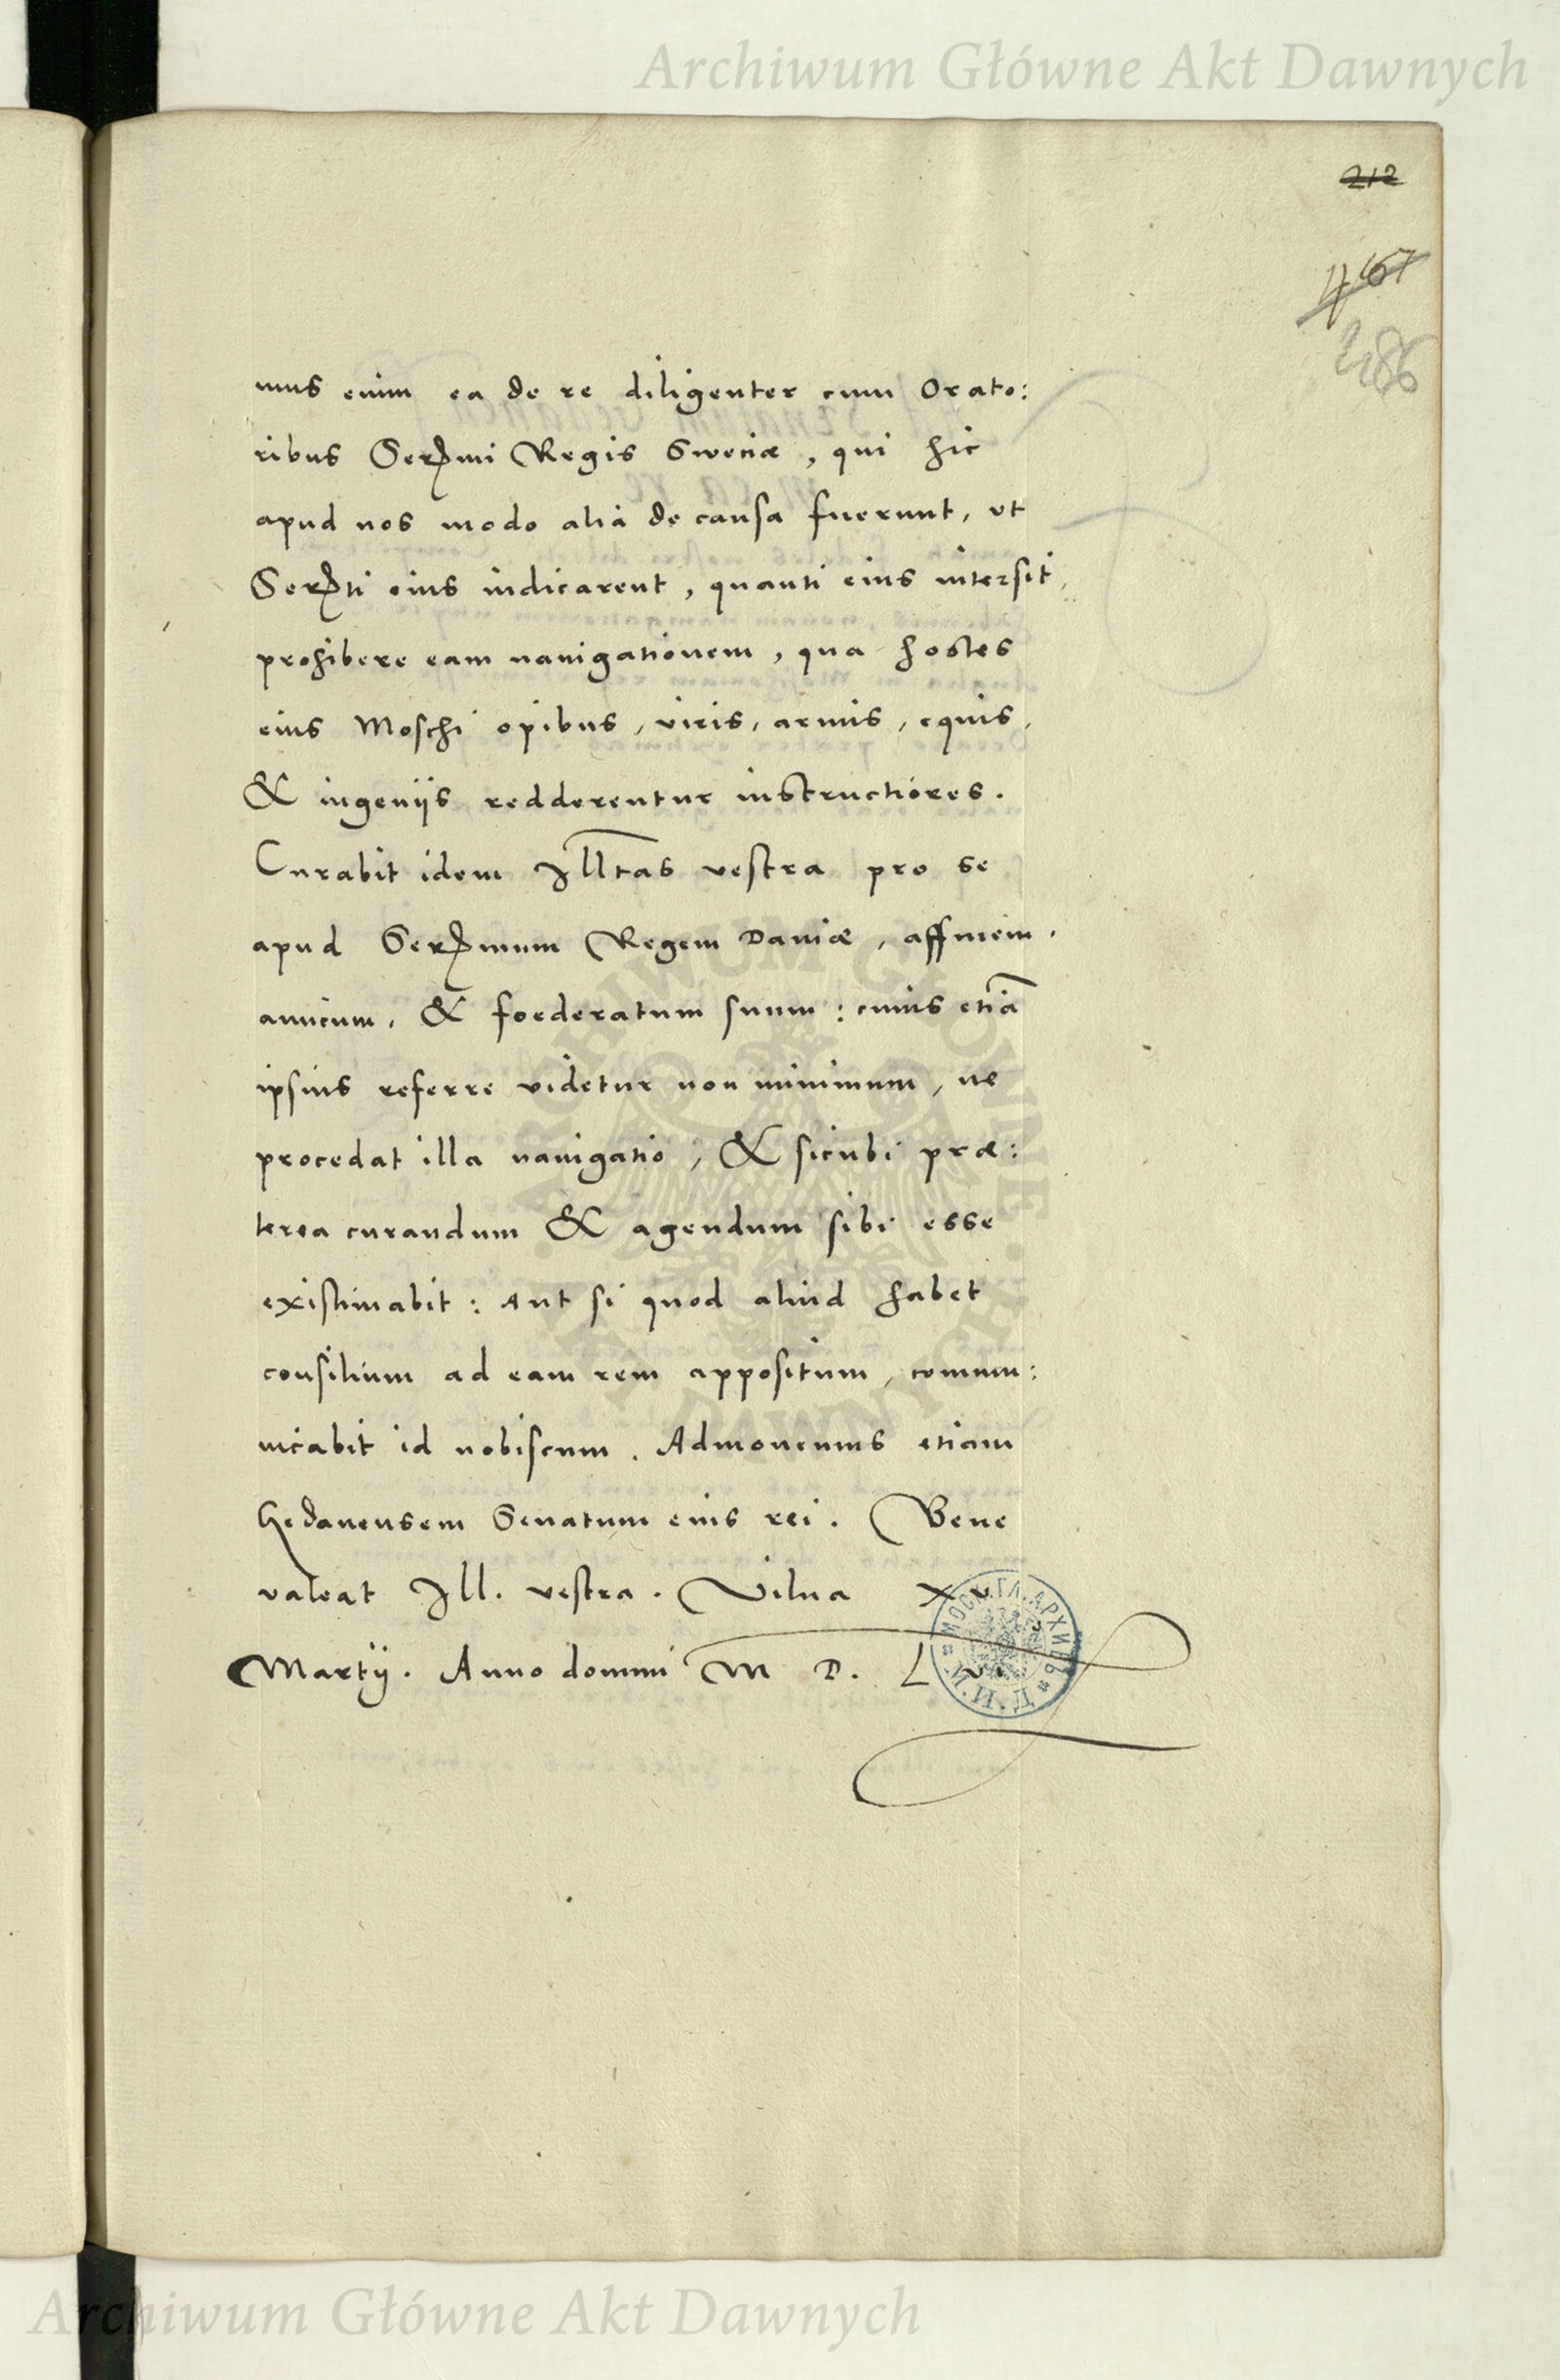 Archiwum Główne Akt Dawnych
212
467
486
mus enim ea de re diligenter cum Orato:
ribus Serᵐⁱ Regis Sweciæ, qui hic
apud nos modo alia de causa fuerunt, ut
Serᵗⁱ eius indicarent, quanti eius intersit,
prohibere eam navigationem, qua hostes
eius Moschi opibus, viris, armis, equis,
& ingeniis redderentur instructiores.
Curabit idem Illtas vestra pro se
apud Sermum Regem Daniæ, affinem,
amicum, & foederatum suum: cuius etiā
ipsius referre videtur non minimum, ne
procedat illa navigatio, & sicubi præ:
terea curandum & agendum sibi esse
existimabit: Aut si quod aliud habet
consilium ad eam rem appositum, commu:
nicabit id nobiscum. Admonemus etiam
Gedanensem Senatum eius rei. Bene
valeat Ill. vestra. Vilna
Martij. Anno domini M D. L
МОСК. ГЛ. АРХИВЪ М.И.Д.
Archiwum Główne Akt Dawnych